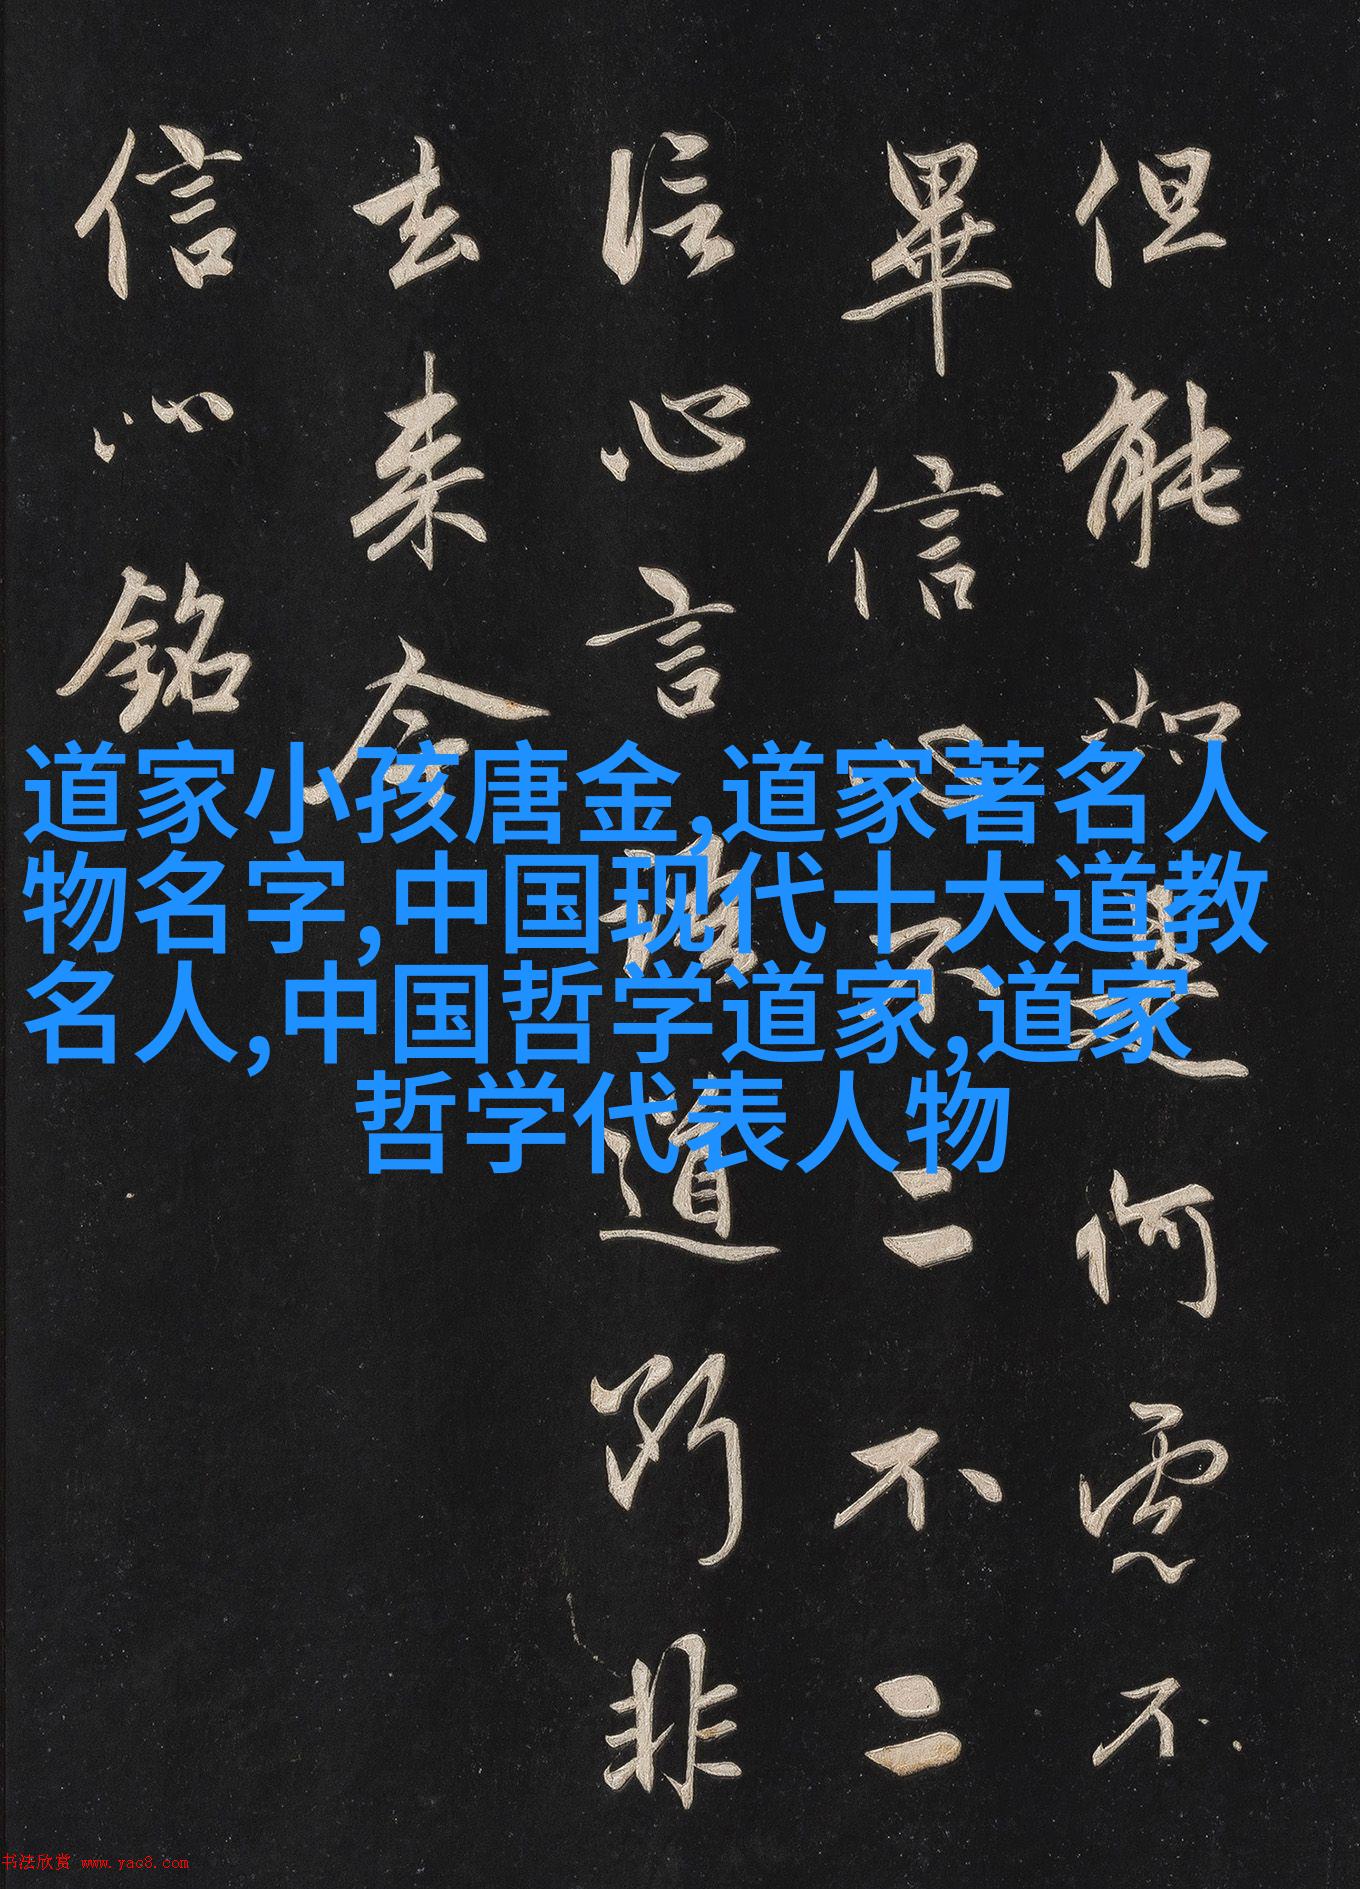 但能如是何慮不
畢信心不二不二
信心言語道断非
去来今
信心銘
道家小孩唐金,道家著名人
物名字,中国现代十大道教
名人,中国哲学道家,道家
哲学代表人物
书法欣赏 www.yac8.com